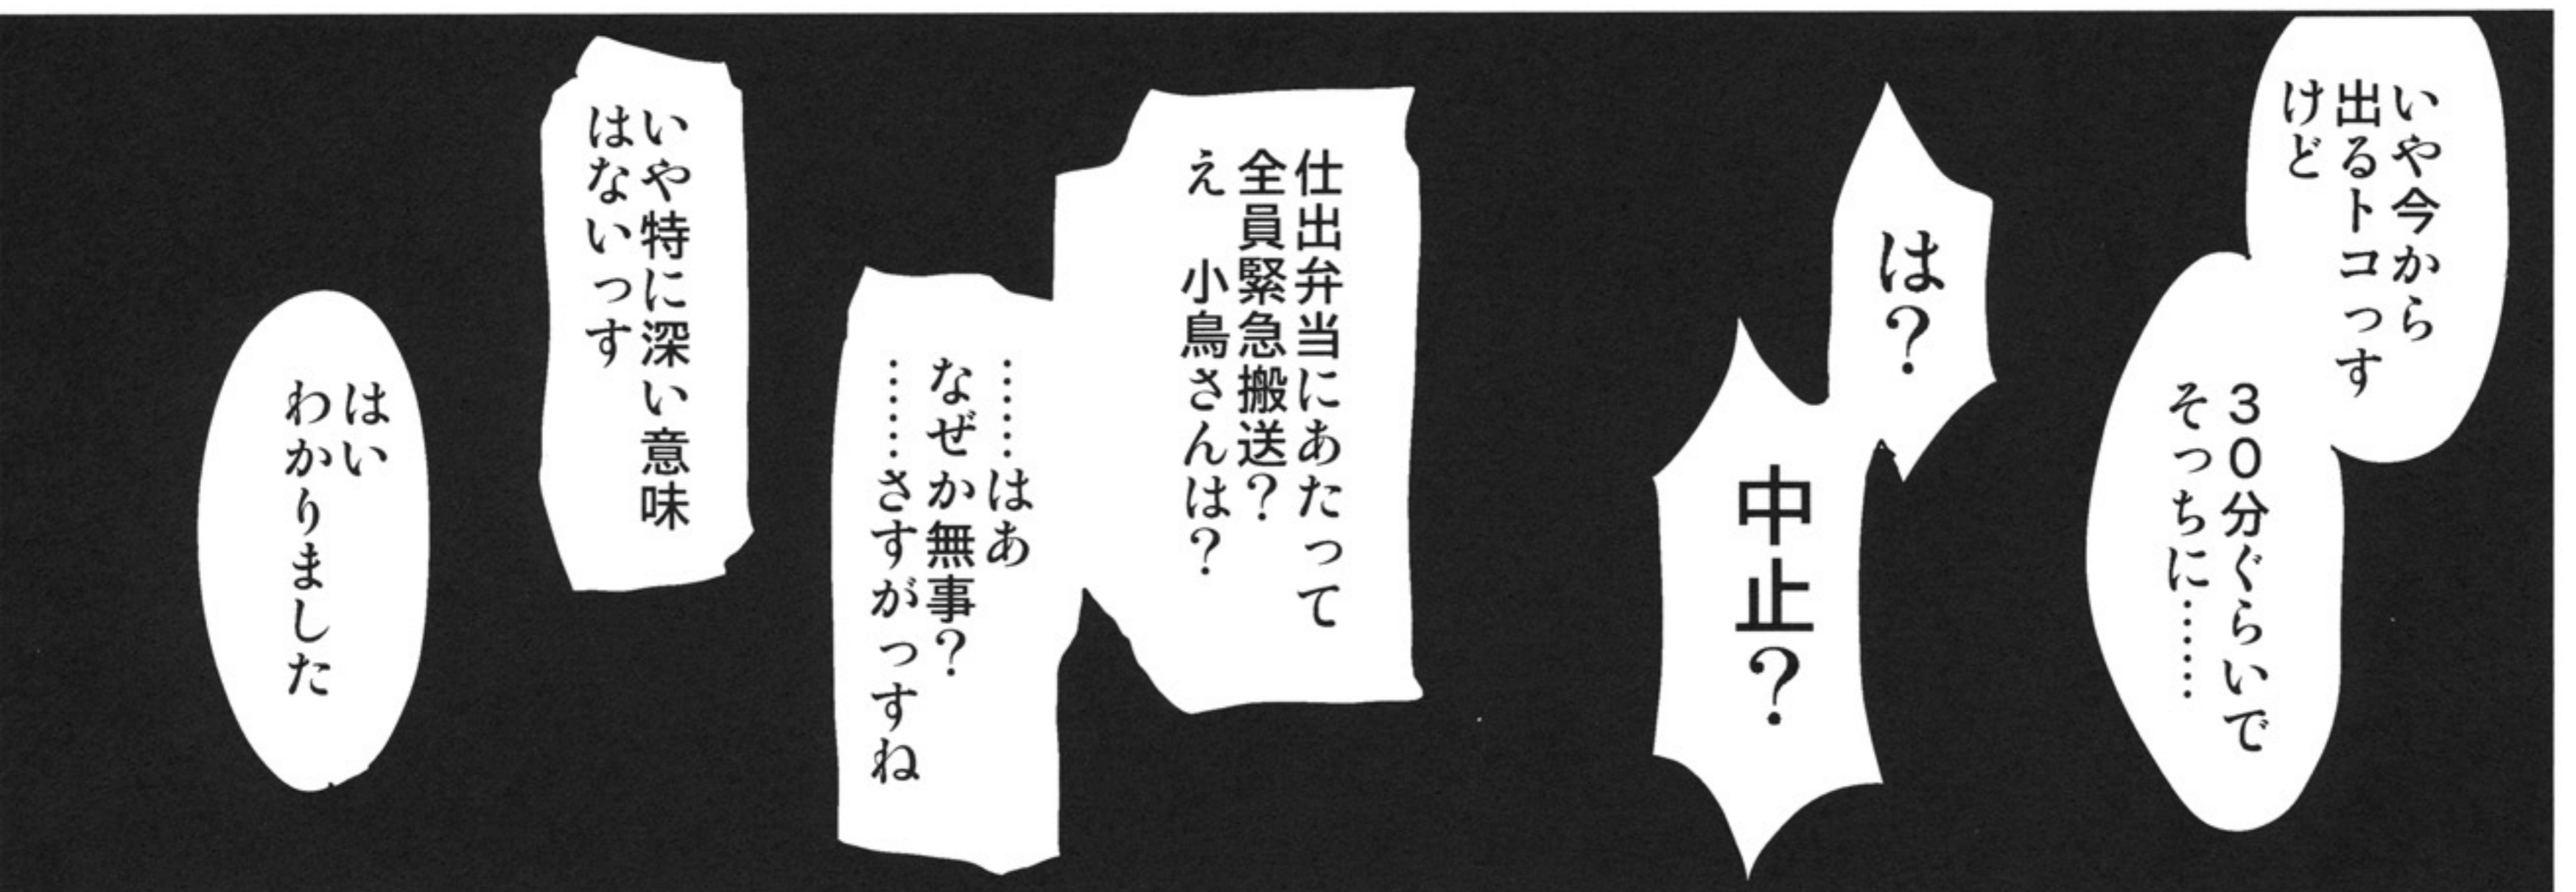 いや今から
出るトコっす
けど
３０分ぐらいで
そっちに……
は？
中止？
仕出弁当にあたって
全員緊急搬送？
え　小鳥さんは？
……はあ
なぜか無事？
……さすがっすね
いや特に深い意味
はないっす
はい
わかりました